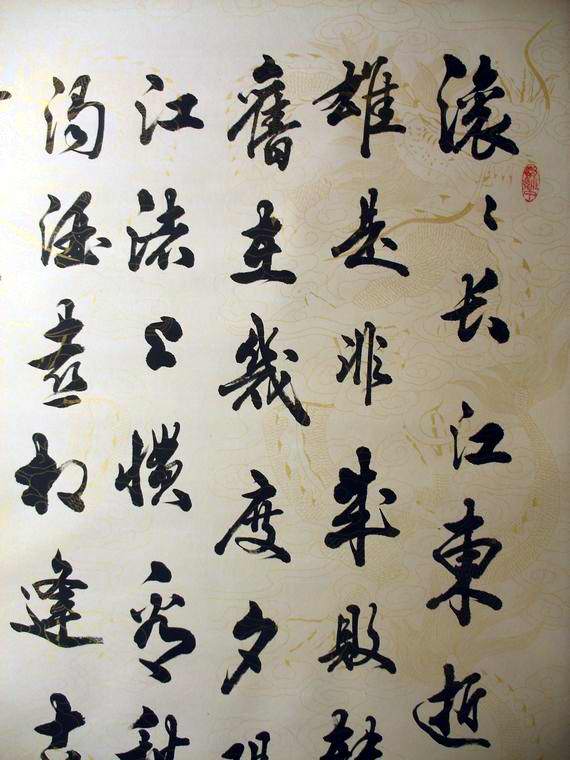 滚〻长江東逝
雄是非成敗
舊在幾度夕
江渚上慣看
濁酒喜相逢